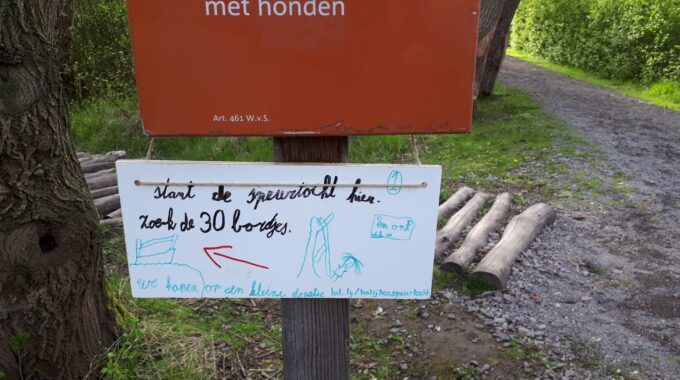 met honden
Art. 461 W.v.S.
1
start de speurtocht hier.
zoek de 30 bordjes.
we hopen op een kleine donatie bit.ly/